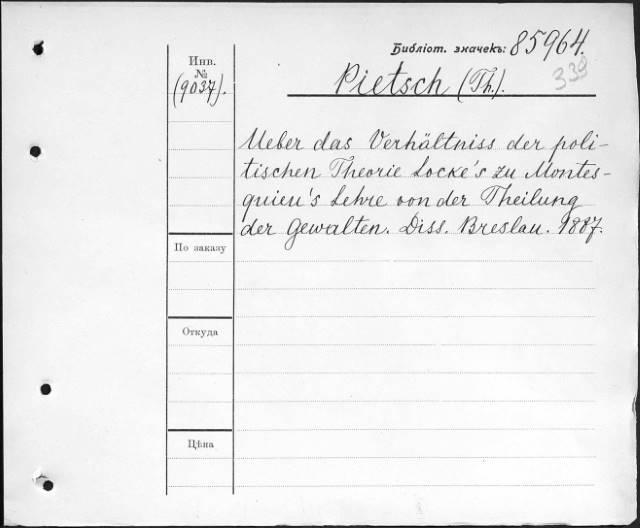 Библіот. значекъ: 85964.
339
Инв.
№
(9037).
Pietsch (Th.).
Ueber das Verhältniss der poli-
tischen Theorie Locke's zu Montes-
quieu's Lehre von der Theilung
der Gewalten. Diss. Breslau. 1887.
По заказу
Откуда
Цѣна